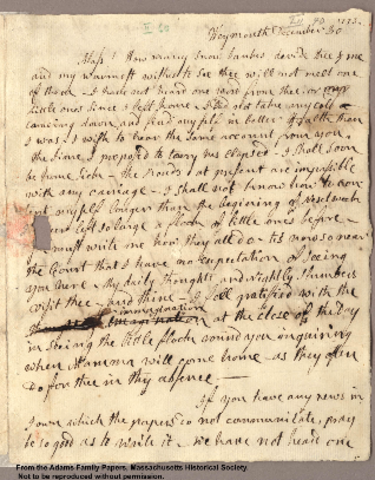 Weymouth December 30 1773
Alass! How many snow banks devide thee & me
and my warmest wishes to see thee will not melt one
of them. I have not heard one word from thee, or our
Little ones since I left home. I did not take any cold
comeing down, and find my self in better Health than
I was. I wish to hear the same account from you.
the Time I proposed to tarry has elapsed. I shall soon
be home sick. The Roads at present are impassible
with any carriage. I shall not know how to con
tent myself longer than the begining of Next week
ever left so large a flock of little ones before
must write me how they all do. Tis now so near
the Court that I have no expectation of seeing
you here. My daily thoughts and Nightly Slumbers
visit thee and thine. I feel gratified with the
immagination
at the close of the Day
in seeing the little flock round you inquiring
when Mamma will come home as they often
do for thee in thy absence
If you have any news in
Town which the papers do not communicate, pray
be so good as to write it. We have not heard one
From the Adams Family Papers, Massachusetts Historical Society.
Not to be reproduced without permission.